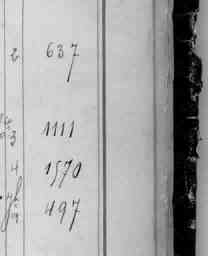 2 637
3 1111
4 1570
497